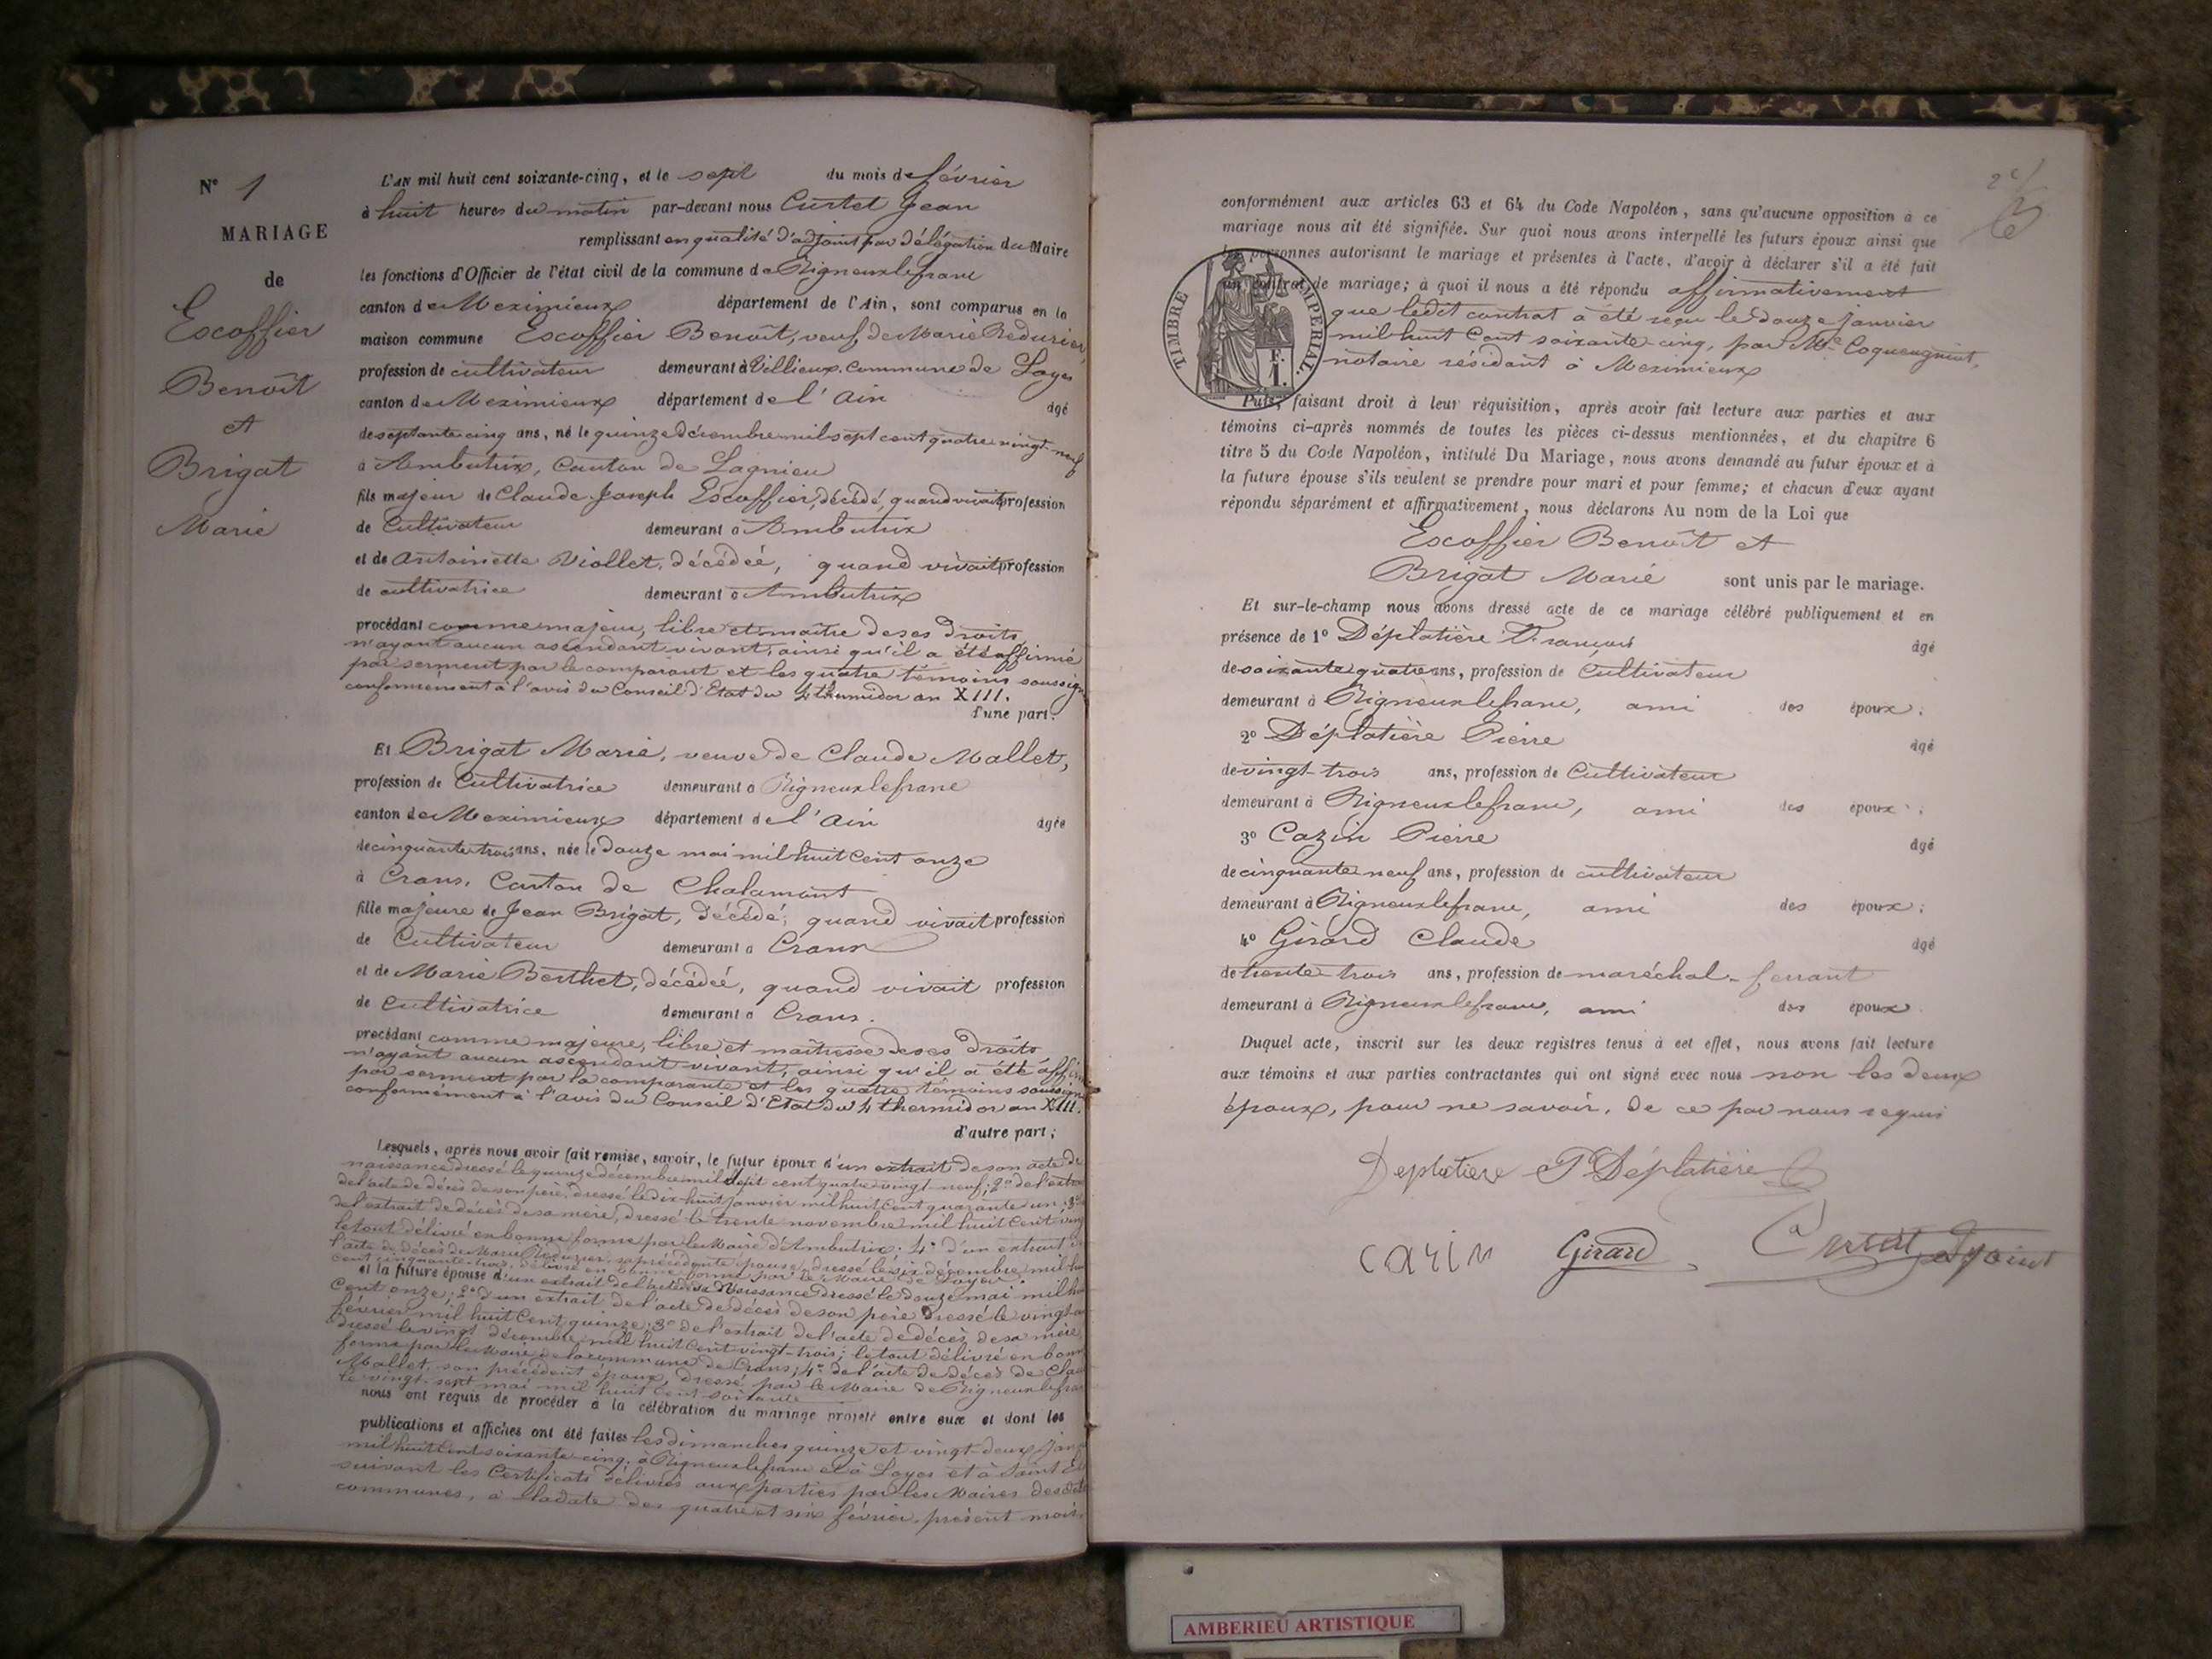 N° 1
MARIAGE
de
Escoffier
Benoît
et
Brigat
Marie
L'AN mil huit cent soixante-cinq, et le sept du mois de février
à huit heures du matin par-devant nous Curtet Jean
remplissant en qualité d'adjoint par délégation du Maire
les fonctions d'Officier de l'état civil de la commune de Rigneuxlefranc
canton de Meximieux département de l'Ain, sont comparus en la
maison commune Escoffier Benoît, veuf de Marie Redurier
profession de cultivateur demeurant à Villieux, Commune de Loyes
canton de Meximieux département de l'Ain âgé
de septante cinq ans, né le quinze décembre mil sept cent quatre vingt-neuf
à Ambutrix, Canton de Lagnieu
fils majeur de Claude Joseph Escoffier, décédé, quand vivait profession
de Cultivateur demeurant à Ambutrix
et de Antoinette Viollet, décédée, quand vivait profession
de cultivatrice demeurant à Ambutrix
procédant comme majeur, libre et maître de ses droits
n'ayant aucun ascendant vivant, ainsi qu'il a été affirmé
par serment par le comparant et les quatre témoins soussig
conformément à l'avis du Conseil d'Etat du 4 thermidor an XIII.
d'une part;
Et Brigat Marie, veuve de Claude Mallet,
profession de Cultivatrice demeurant à Rigneuxlefranc
canton de Meximieux département de l'Ain âgée
de cinquante trois ans, née le douze mai mil huit cent onze
à Crans, Canton de Chalamont
fille majeure de Jean Brigat, décédé, quand vivait profession
de Cultivateur demeurant à Crans
et de Marie Berthet, décédée, quand vivait profession
de Cultivatrice demeurant à Crans.
procédant comme majeure, libre et maîtresse de ses droits
n'ayant aucun ascendant vivant, ainsi qu'il a été affi
par serment par la comparante et les quatre témoins soussign
conformément à l'avis du Conseil d'Etat du 4 thermidor an XIII.
d'autre part;
Lesquels, après nous avoir fait remise, savoir, le futur époux d'un extrait de son acte de
naissance dressé le quinze décembre mil sept cent quatre vingt-neuf; 2° de l'extra
de l'acte de décès de son père, dressé le dix huit janvier mil huit cent quarante un; 3°
del'extrait de décès de sa mère, dressé le trente novembre mil huit cent ving
le tout délivré en bonne forme par le Maire d'Ambutrix; 4° d'un extrait d
l'acte de décès de Marie Redurier, sa précédente épouse, dressé le six décembre mil hu
cent cinquante-trois, délivré en bonne forme par le Maire de Loyes.
et la future épouse d'un extrait de l'acte de sa Naissance dressé le douze mai mil hu
Cent onze; 2° d'un extrait de l'acte de décès de son père dressé le vingt
février mil huit Cent quinze; 3° de l'extrait de l'acte de décès de sa mère
dressé le vingt décembre mil huit Cent vingt-trois; le tout délivré en bonn
forme par le Maire de la commune de Crans; 4° de l'acte de décès de Clau
Mallet, son précédent époux, dressé par le Maire de Rigneuxlefran
le vingt-sept mai mil huit Cent soixante
nous ont requis de procéder à la célébration du mariage projeté entre eux et dont les
publications et affiches ont été faites les dimanches quinze et vingt-deux janv
mil huit Cent soixante-cinq, à Rigneuxlefranc et à Loyes et à Saint
suivant les Certificats délivrés aux parties par les Maires desdit
communes, à la date des quatre et six février, présent mois
conformément aux articles 63 et 64 du Code Napoléon, sans qu'aucune opposition à ce
mariage nous ait été signifiée. Sur quoi nous avons interpellé les futurs époux ainsi que
les personnes autorisant le mariage et présentes à l'acte, d'avoir à déclarer s'il a été fait
un contrat de mariage; à quoi il nous a été répondu affirmativement
que ledit contrat a été reçu le douze Janvier
mil huit Cent soixante-cinq, par Me Coqueugniot,
notaire résidant à Meximieux
TIMBRE IMPERIAL
1 F.
Puis, faisant droit à leur réquisition, après avoir fait lecture aux parties et aux
témoins ci-après nommés de toutes les pièces ci-dessus mentionnées, et du chapitre 6
titre 5 du Code Napoléon, intitulé Du Mariage, nous avons demandé au futur époux et à
la future épouse s'ils veulent se prendre pour mari et pour femme; et chacun d'eux ayant
répondu séparément et affirmativement, nous déclarons Au nom de la Loi que
Escoffier Benoît et
Brigat Marie sont unis par le mariage.
Et sur-le-champ nous avons dressé acte de ce mariage célébré publiquement et en
présence de 1° Déplatière François âgé
de soixante quatre ans, profession de Cultivateur
demeurant à Rigneuxlefranc, ami des époux;
2° Déplatière Pierre âgé
de vingt-trois ans, profession de Cultivateur
demeurant à Rigneuxlefranc, ami des époux;
3° Cazin Pierre âgé
de cinquante neuf ans, profession de cultivateur
demeurant à Rigneuxlefranc, ami des époux;
4° Girard Claude âgé
de trente-trois ans, profession de maréchal-ferrant
demeurant à Rigneuxlefranc, ami des époux
Duquel acte, inscrit sur les deux registres tenus à cet effet, nous avons fait lecture
aux témoins et aux parties contractantes qui ont signé avec nous non les deux
époux, pour ne savoir, de ce par nous requis
Deplatiere P Déplatière
cazin Girard Curtet adjoint
AMBERIEU ARTISTIQUE